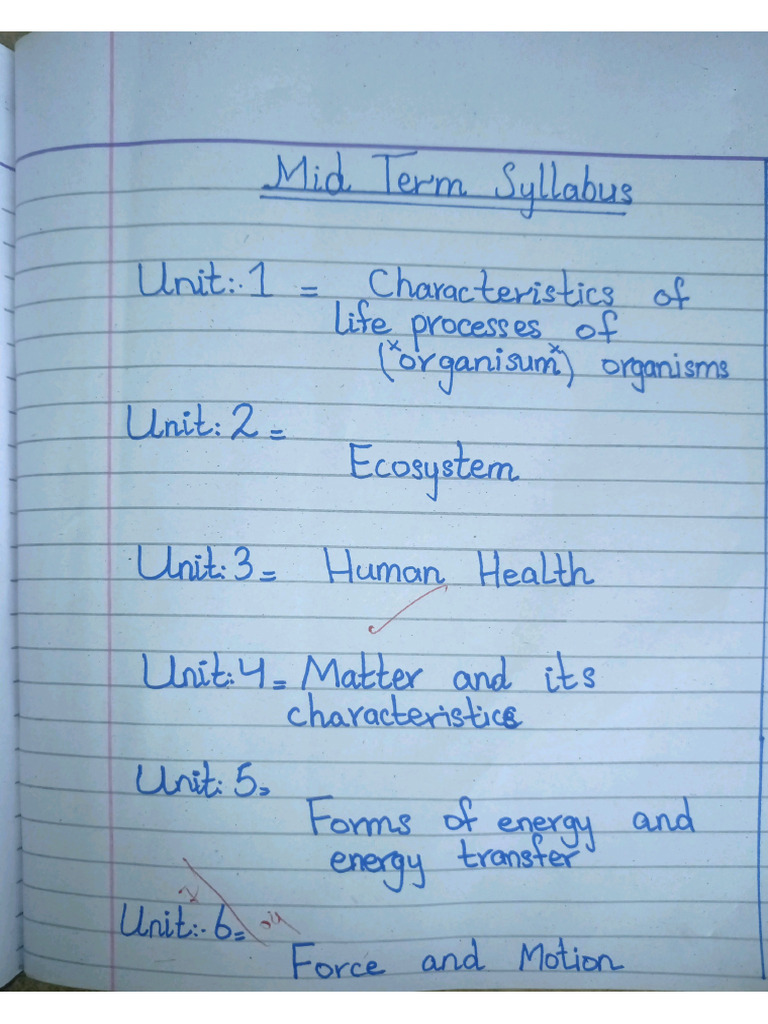 Mid Term Syllabus
Unit:.1 = Characteristics of
life processes of
(ˣorganisumˣ) organisms
Unit: 2 =
Ecosystem
Unit: 3 = Human Health
Unit: 4 = Matter and its
characteristics
Unit: 5 =
Forms of energy and
energy transfer
Unit:. 6 =
Force and Motion